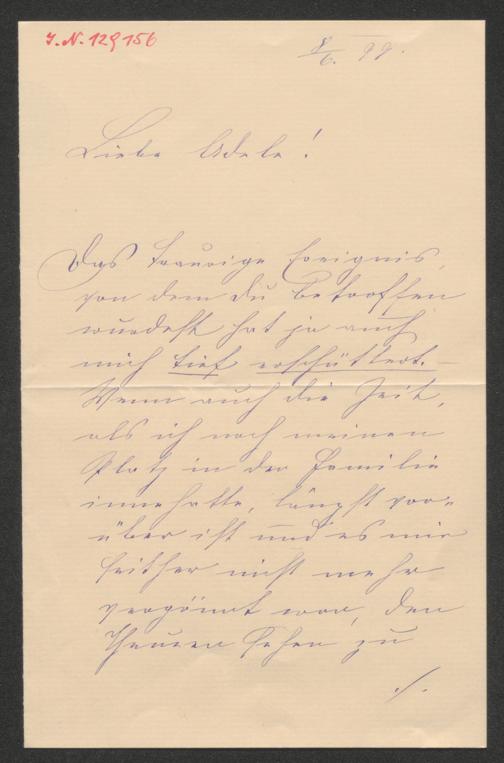 J. N. 129156
8/6. 99.
Liebe Adele!
Das traurige Ereignis,
von dem du betroffen
wurdest hat ja auch
mich tief erschüttert. –
Wenn auch die Zeit,
als ich noch meinen
Platz in der Familie
innehatte, längst vor=
über ist und es mir
seither nicht mehr
vergönnt war, den
Theuren sehen zu
./.